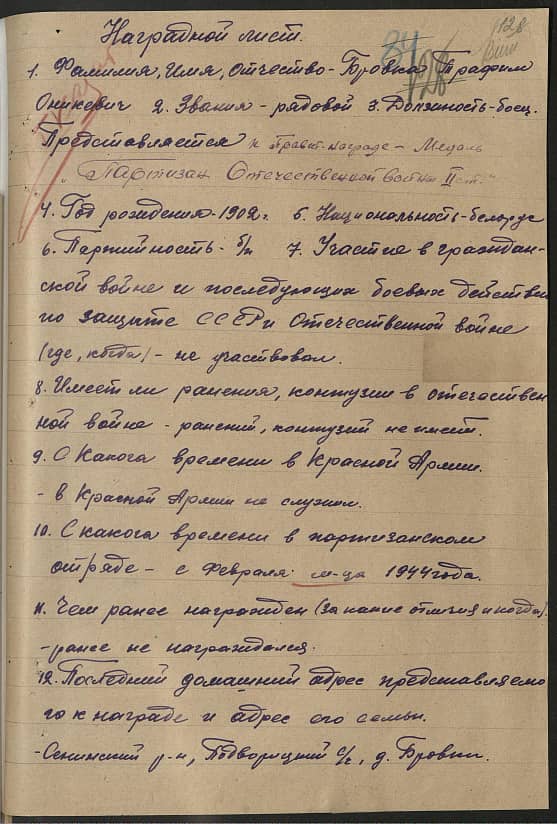 128
84
128
Наградной лист.
1. Фамилия, Имя, Отчество - Бровка Трафим
Оникевич 2. Звания - рядовой 3. Должность - боец.
Представляется к Правит. награде - Медаль
"Партизан Отечественной войны II ст."
4. Год рождения - 1902 г. 5. Национальность - белорус
6. Партийность - б/п 7. Участие в граждан-
ской войне и последующих боевых действи
по защите СССР и Отечественной войне
(где, когда) - не участвовал.
8. Имеет ли ранения, контузии в отечествен
ной войне - ранений, контузий не имеет.
9. С Какога времени в Красной Армии.
- в Красной Армии не служил.
10. С какога времени в партизанском
отряде - с Февраля м-ца 1944 года.
11. Чем ранее награжден (за какие отличия и когда)
- ранее не награждался.
12. Последний домашний адрес представляемо
го к награде и адрес его семьи.
- Сенинский р-н, Подворицкий с/с, д. Бровки.